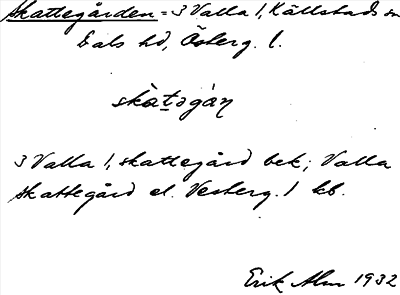 Skattegården = 3 Valla 1, Källstads sn
Dals hd, Österg. l.
skàtǝgán
3 Valla 1, skattegård bek; Valla
skattegård el. Vesterg. 1 kb.
Erik Alm 1932